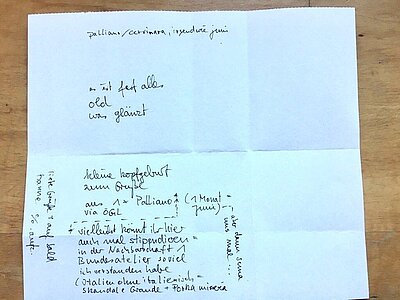 palliano/cervinara, irgendwie juni
es ist fast alles
old
was glänzt
kleine kopfgeburt
zum Gruße
aus 1 = Palliano (1 Monat =
via ÖGL juni)
vielleicht könnt ihr hier
auch mal stipendieren =
in der Nachbarschaft 1
Bundesatelier soviel
ich verstanden habe
(italien ohne italienisch =
skandale Grande + Porka miseria
aber dann
was mal ...
liebe Grüße + auf bald
hanne